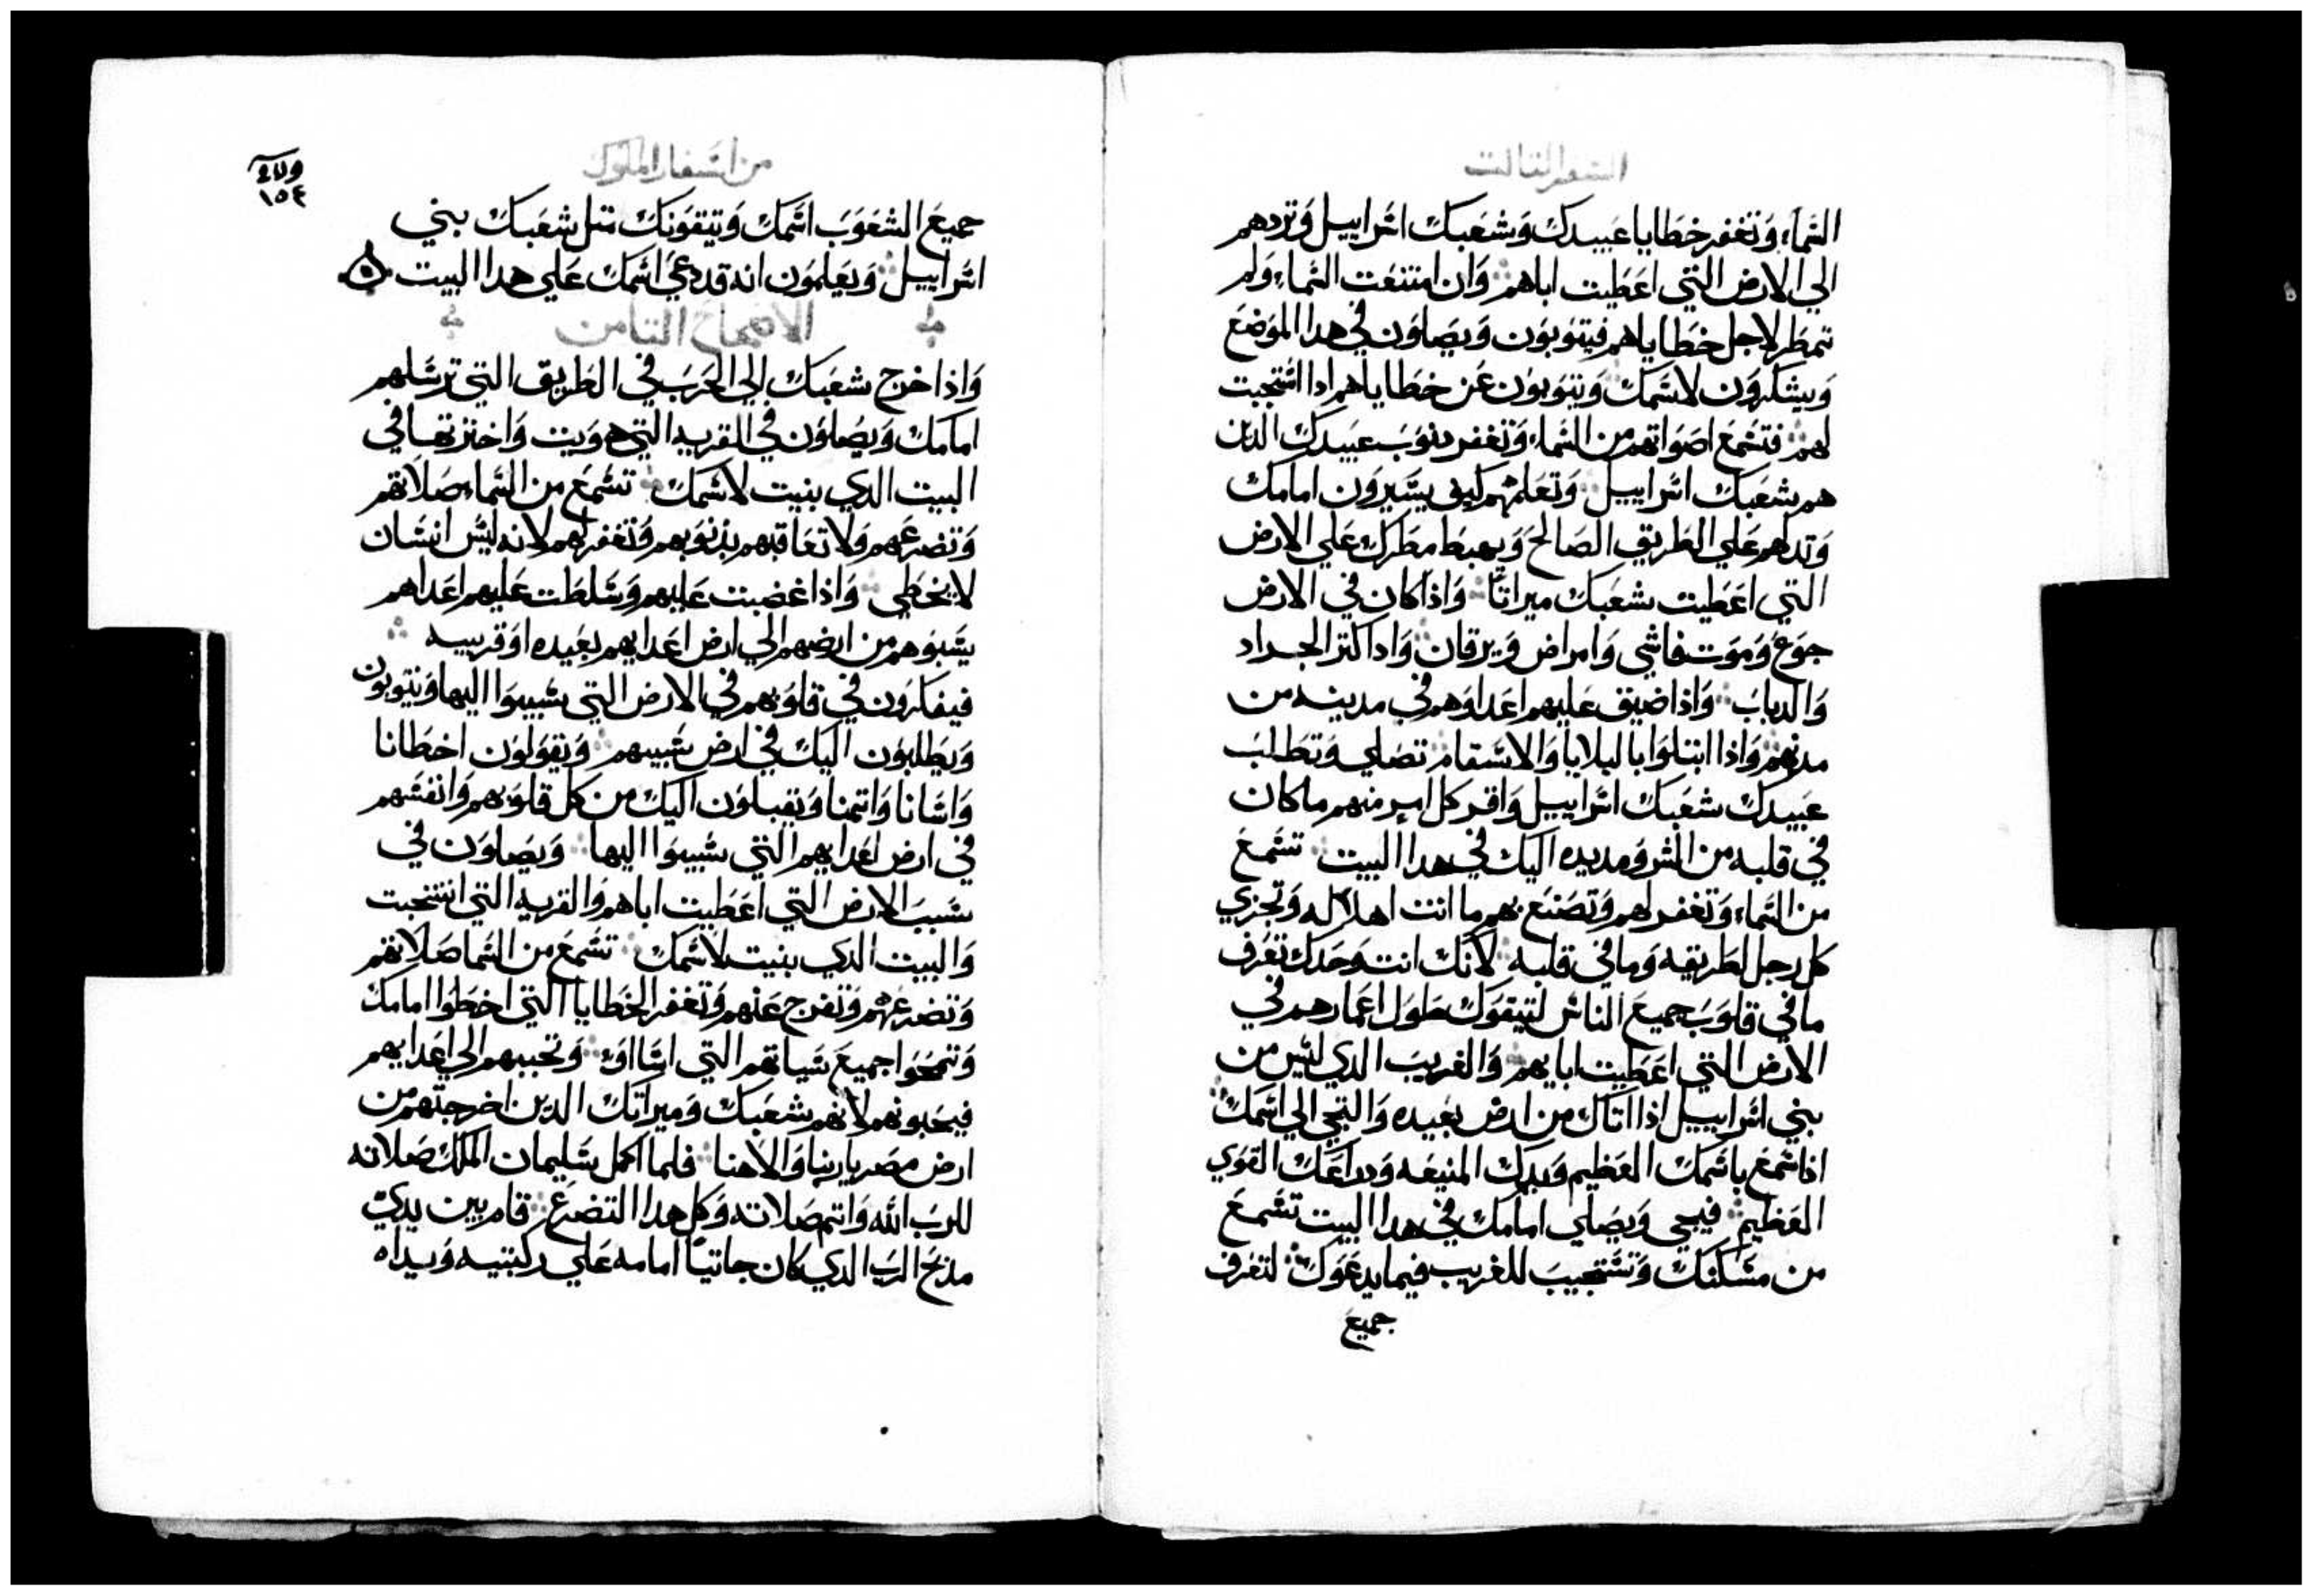 السفر التالت
السَّماء، وَتغفر خطايا عَبيدك وَشعَبك اسَراييل وَتردهم
الي الارض التي اعَطيت اباهم وَان امتنعَت السَماء وَلم
تمطر لاجل خطاياهم فيتوَبوَن وَيصَلوَن في هدا الموَضعَ
وَيشكروَن لاسَمك وَيتوَبوَن عَن خطاياهم ادا استجبت
لهم فتسَمعَ اصَوَاتهم من السَماء، وَتغفر دنوَب عَبيدك الدين
هم شعَبك اسَراييل وَتعَلمهم كيف يسَيروَن امامك
وَتدلهم عَلي الطريق الصَالح وَيهبط مطرك عَلي الارض
التي اعَطيت شعَبك ميراتًا وَاذا كان في الارض
جوَعَ وَموَت فاشي وَامراض وَيرقان وَادا اكتر الجراد
وَالدباب وَاذا ضيق عَليهم اعَداوَهم في مدينه من
مدنهم وَاذا ابتلوَا بالبلايا وَالاسَقام تصَلي وَتطلب
عَبيدك شعَبك اسَراييل وَاقر كل امر منهم ما كان
في قلبه من الشر وَمد يده اليك في هدا البيت تسَمعَ
من السَماء، وَتغفر لهم وَتصَنعَ بهم ما انت اهلا له وَتجزي
كل رجل لطريقه وَما في قلبه لانك انت وَحدك تعَرف
ما في قلوَب جميعَ الناسَ لتيقوَك طوَل اعَمارهم في
الارض التي اعَطيت ابايهم وَالغريب الدي ليسَ من
بني اسَراييل اذا اتاك من ارض بعَيده وَالتجي الي اسَمك
اذا سَمعَ باسَمك العَظيم وَيدك المنيعَه وَدراعَك القوَي
العَظيم فيجي وَيصَلي امامك في هدا البيت تسَمعَ
من مسَكنك وَتسَتجيب للغريب فيما يدعَوَك لتعَرف
جميعَ
من اسَفار الملوَك
١٥٤
جميعَ الشعَوَب اسَمك وَتيقوَنك متل شعَبك بني
اسَراييل وَيعَلموَن انه قد دعَي اسَمك عَلي هدا البيت
الاصحاح التامن
وَاذا خرج شعَبك الي الحرَب في الطريق التي ترسَلهم
امامك وَيصَلوَن في القريه التي هوَيت وَاخترتها في
البيت الدي بنيت لاسَمك تسَمعَ من السَماء صَلاتهم
وَتضرعَهم وَلا تعَاقبهم بذنوَبهم وَتغفر لهم لانه ليسَ انسَان
لا يخطي وَاذا غضبت عَليهم وَسَلطت عَليهم اعَداهم
يسَبوَهم من ارضهم الي ارض اعَدايهم بعَيده اوَ قريبه
فيفكروَن في قلوَبهم في الارض التي سَبيوَا اليها وَيتوبون
وَيطلبوَن اليك في ارض سَبيهم وَيقوَلوَن اخطانا
وَاسَانا وَاتمنا وَيقبلوَن اليك من كل قلوَبهم وَانفسَهم
في ارض اعَدايهم التي سَبيوَا اليها وَيصَلوَن في
سَبب الارض التي اعَطيت اباهم وَالقريه التي انتخبت
وَالبيت الدي بنيت لاسَمك تسَمعَ من السَما صَلاتهم
وَتضرعَهم وَتفرج عَنهم وَتغفر الخطايا التي اخطوَا امامك
وَتمحوَا جميعَ سَياتهم التي اسَااوَا وَتحببهم الي اعَدايهم
فيحبونهم لانهم شعَبك وَميراتك الدين اخرجتهم من
ارض مصَر ياربنا وَالاهنا فلما اكمل سَليمان الملك صَلاته
للرَب الله وَاتم صَلاته وَكل هدا التضرعَ قام بين يدي
مذبح الرَب الدي كان جاتيًا امامه عَلي ركبتيه وَيداه